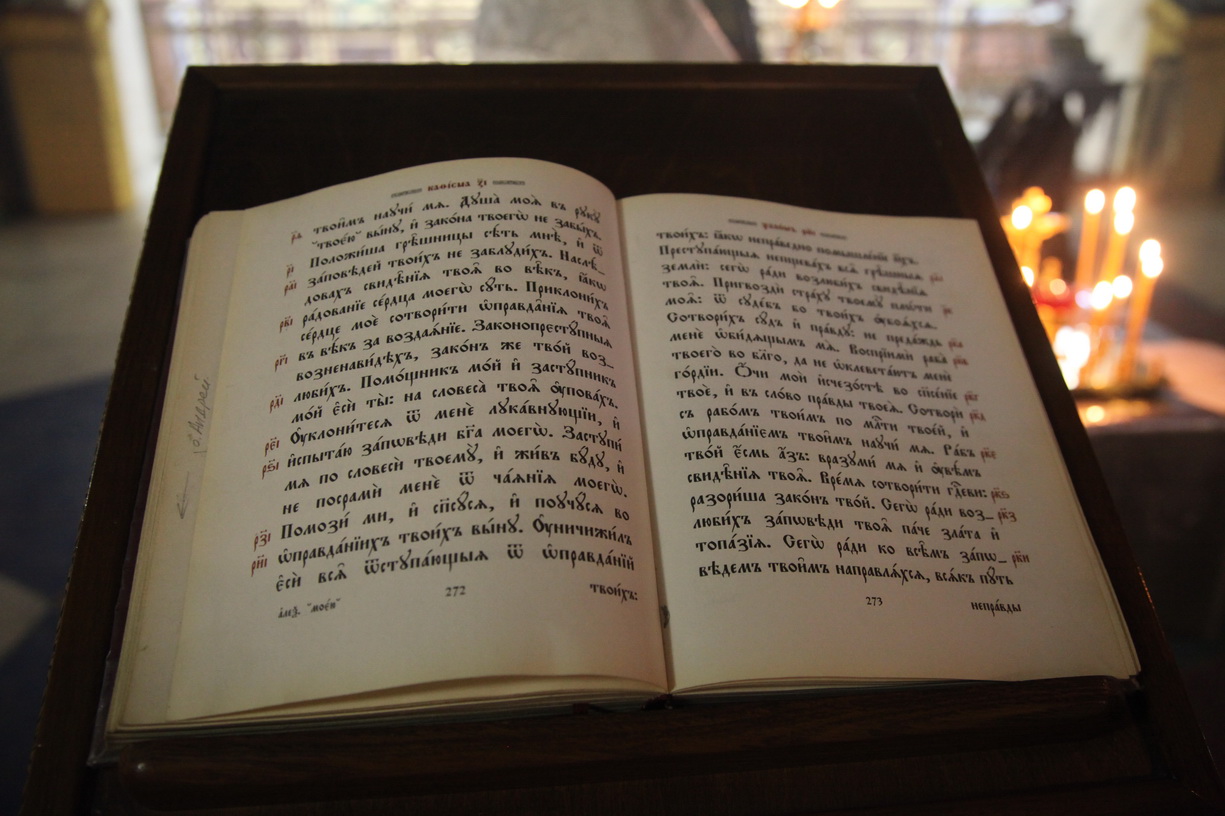 каѳісма з҃і
твои̑мъ научи́ мѧ. Душа̀ моѧ̀ въ руку̀
"твоє́ю" вы́ну, и҆ зако́на твоегѡ̀ не забы́хъ.
Положи́ша грѣ̑шницы сѣ́ть мнѣ̀, и҆ ѿ
за́повѣдей твои́хъ не заблуди́хъ. Наслѣ́_
довахъ свидѣ̑нїѧ твоѧ̑ во вѣ́къ, ꙗ҆́кѡ
ра́дованїе се́рдца моегѡ̀ су́ть. Приклони́хъ
се́рдце моѐ сотвори́ти ѡ҆правда̑нїѧ твоѧ̑
въ вѣ́къ за воздаѧ́нїе. Законопресту̑пныѧ
возненави́дѣхъ, зако́нъ же тво́й воз_
люби́хъ. Помо́щникъ мо́й и҆ засту́пникъ
мо́й є҆сѝ ты̀: на словеса̀ твоѧ̑ ᲂу҆пова́хъ.
Оу҆клони́тесѧ ѿ менє̀ лука́внующїи, и҆
и҆спыта́ю за́пѡвѣди бг҃а моегѡ̀. Заступѝ
мѧ по словесѝ твоему̀, и҆ жи́въ бу́ду, и҆
не посрамѝ менє̀ ѿ ча́ѧнїѧ моегѡ̀.
Помози́ ми, и҆ сп҃су́сѧ, и҆ поучу́сѧ во
ѡ҆правда́нїихъ твои́хъ вы́ну. Оу҆ничижи́лъ
є҆сѝ всѧ̑ ѿступа́ющыѧ ѿ ѡ҆правда́нїй
р҃ѳ
р҃і
р҃аі
р҃ві
р҃гі
р҃ді
р҃єі
р҃ѕі
р҃зі
р҃иі
272
твои́хъ:
"моє́й"
о. Андрей
ѱалóмъ рн҃і
твои́хъ: ꙗ҆́кѡ непра́ведно помышле́нїе и҆́хъ.
Преступа́ющыѧ непщева́хъ всѧ̑ грѣ̑шныѧ
землѝ: сегѡ̀ ра́ди возлюби́хъ свидѣ̑нїѧ
твоѧ̑. Пригвоздѝ стра́ху твоему̀ плѡ́ти
моѧ̑: ѿ суде́бъ бо твои́хъ ᲂу҆боѧ́хсѧ.
Сотвори́хъ су́дъ и҆ пра́вду: не преда́ждь
менє̀ ѡ҆би́дѧщымъ мѧ̀. Воспрїимѝ раба̀
твоего̀ во бл҃го, да не ѡ҆клевета́ютъ менє̀
го́рдїи. Ѻ҆́чи моѝ и҆счезо́стѣ во сп҃се́нїе
твоѐ, и҆ въ сло́во пра́вды твоеѧ̀. Сотворѝ
съ рабо́мъ твои́мъ по млⷭ҇ти твое́й, и҆
ѡ҆правда́нїємъ твои̑мъ научи́ мѧ. Ра́бъ
тво́й є҆́смь а҆́зъ: вразуми́ мѧ и҆ ᲂу҆вѣ́мъ
свидѣ̑нїѧ твоѧ̑. Вре́мѧ сотвори́ти гдⷭ҇еви:
разори́ша зако́нъ тво́й. Сегѡ̀ ра́ди воз_
люби́хъ за́пѡвѣди твоѧ̑ па́че зла́та и҆
топа́зїѧ. Сегѡ̀ ра́ди ко всѣ̑мъ за́пѡ_
вѣдемъ твои̑мъ направлѧ́хсѧ, всѧ́къ пу́ть
рк҃а
рк҃в
рк҃г
рк҃д
рк҃є
рк҃ѕ
рк҃з
рк҃и
273
непра́вды